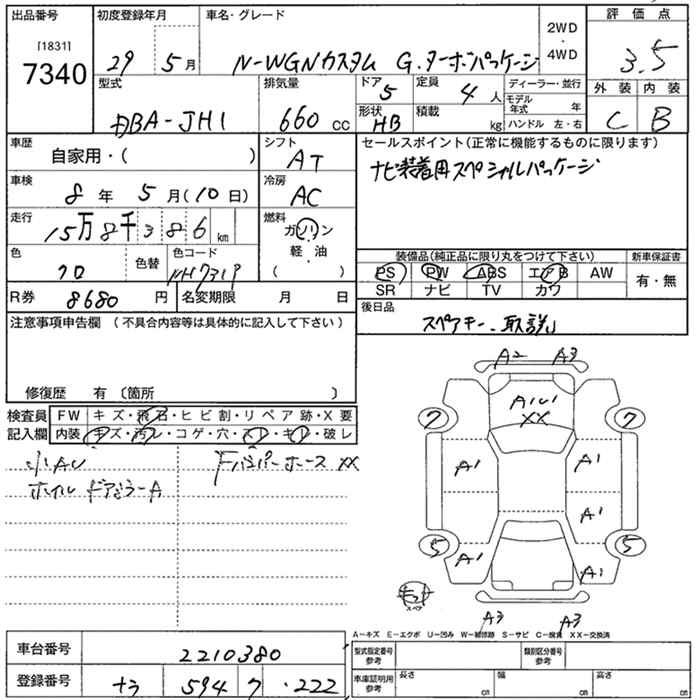 出品番号
[1831]
7340
初度登録年月
29 5月
車名・グレード
N-WGNカスタム G.ターボパッケージ
2WD
・
4WD
評価点
3.5
外装 内装
C B
型式
DBA-JH1
排気量
660 CC
ドア
5
形状
HB
定員
4人
積載
kg
ディーラー・並行
モデル年式 年
ハンドル 左・右
車歴
自家用・( )
シフト
AT
セールスポイント(正常に機能するものに限ります)
ナビ装着用スペシャルパッケージ
車検
8年 5月(10日)
冷房
AC
走行
15万8千386km
燃料
ガソリン
軽・油
( )
色
クロ
色替
色コード
NH731P
装備品(純正品に限り丸をつけて下さい)
PS PW ABS エアB AW
SR ナビ TV カワ
新車保証書
有・無
R券
8680円
名変期限 月 日
後日品
スペアキー、取説
注意事項申告欄 (不具合内容等は具体的に記入して下さい)
修復歴 有 〔箇所 〕
検査員
記入欄
FW キズ・飛石・ヒビ割・リペア跡・X要
内装 キズ・汚レ・コゲ・穴・スレ・キレ・破レ
小AU
Fバンパーホース XX
ホイル ドアミラーA
A2 A3
Aハレ
XX
7 7
A1 A1
A1
5 5
A1 A1
キット
スペア
A3 A3
A-キズ E-エクボ U-凹み W-補修跡 S-サビ C-腐食 XX-交換済
車台番号
2210380
型式指定番号
参考
類別区分番号
参考
登録番号
594 222
車庫証明用
参考
長さ cm
幅 cm
高さ cm